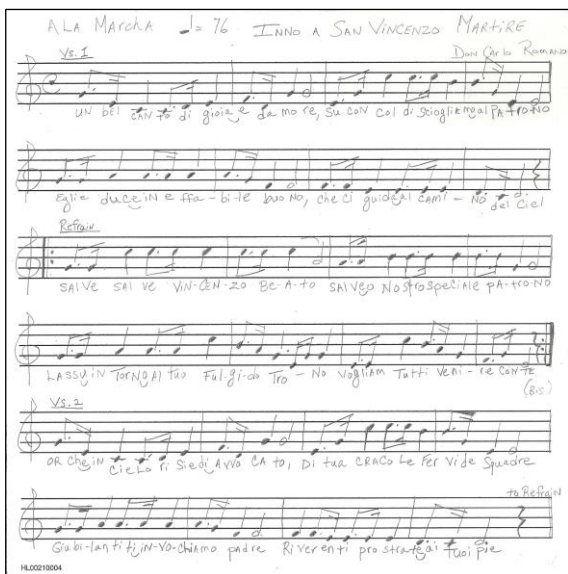 A LA MARCHA ♩= 76 INNO A SAN VINCENZO MARTIRE
Vs. 1 Don Carlo Romano
UN bel CANTO di gioia e d'amore, su con col di sciogliamo al PATRONO
Eglie duce iN e ffa-bi-le buoNo, che ci guida al CAMi-No del Ciel
Refrain
SALVE SALVE VIN-CEN-ZO BE-A-to SALVEO NostrospeciAle pA-tro-NO
LASSU iN TORNO Al tuo Ful-gi-do Tro-No vogliam Tutti veni-re CON TE
(Bis)
Vs. 2
OR che iN CieLo ri Siedi AVVO CA to, Di tua Fer vide Squadre
to Refrain
Giubi-lanti ti iN-VO-chiAmo padre Riverenti prostrate ai Tuoi pie
HL00210004